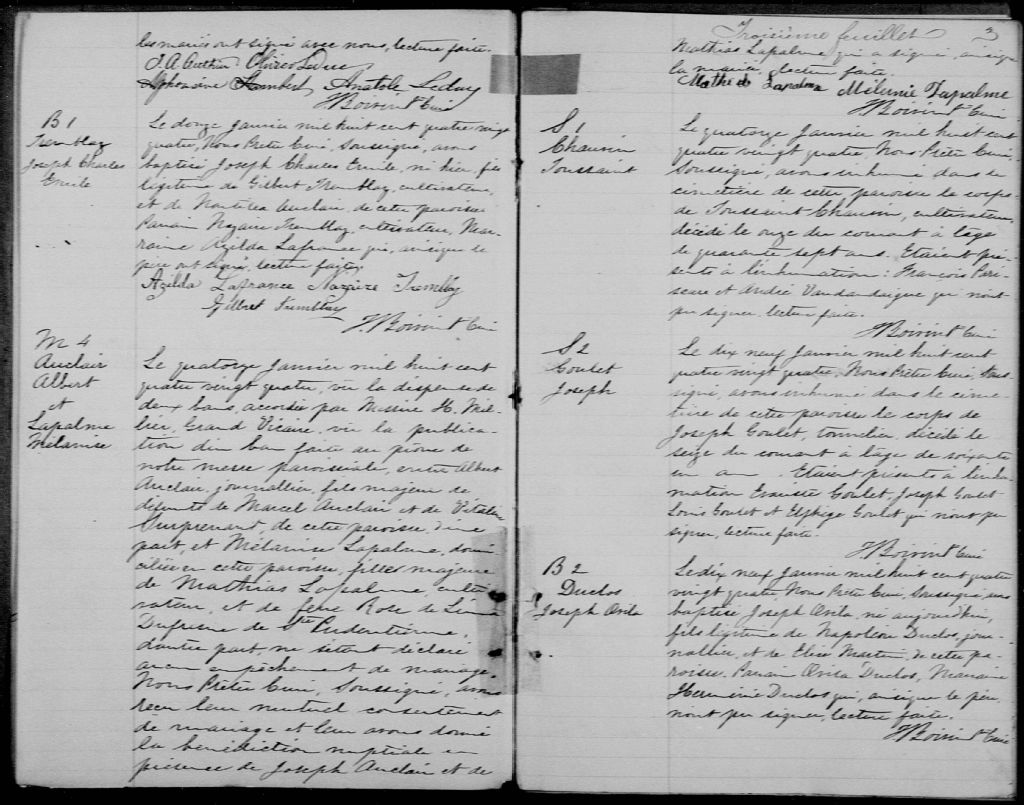 les mariés ont signé avec nous, lecture faite.
J. A. Authier Olivier Leduc
Alphonsine Anatole Leduc
HBoivin Ptre Curé
B 1
Tremblay
Joseph Charles
Emile
Le douze Janvier mil huit cent quatre vingt
quatre, Nous Prêtre Curé, Soussigné, avons
baptisé Joseph Charles Emile, né hier, fils
légitime de Gilbert Tremblay, cultivateur,
et de Auclair, de cette paroisse.
Parrain Nazaire Tremblay, cultivateur, Mar-
raine Azilda Lafrance qui, ainsi que le
père ont signé, lecture faite.
Azilda Lafrance Nazaire Tremblay
Gilbert Tremblay
HBoivin Ptre Curé
M 4
Auclair
Albert
et
Lapalme
Mélanise
Le quatorze Janvier mil huit cent
quatre vingt quatre, vu la dispense de
deux bans, accordée par Messire H.
Grand Vicaire, vu la publica-
tion d'un ban faite au prône de
notre messe paroissiale, entre Albert
Auclair, journallier, fils majeur de
défunts de Marcel Auclair et de Vitaline
Surprenant, de cette paroisse, d'une
part, et Mélanise Lapalme, domi
ciliée en cette paroisse, fille majeure
de Mathias Lapalme, culti
vateur, et de feue Rose de Lima
Dufresne de Ste Pudentienne,
d'autre part, ne s'étant déclaré
aucun empêchement de mariage,
Nous Prêtre Curé, Soussigné, avons
reçu leur mutuel consentement
de mariage et leur avons donné
la bénédiction nuptiale en
présence de Joseph Auclair et de
Troisième feuillet 3
Mathias Lapalme qui a signé, ainsi que
la mariée, lecture faite.
Mathias Lapalme Mélanise Lapalme
HBoivin Ptre Curé
S 1
Chausin
Toussaint
Le quatorze Janvier mil huit cent
quatre vingt quatre, Nous Prêtre Curé,
Soussigné, avons inhumé dans le
cimetière de cette paroisse le corps
de Toussaint Chausin, cultivateur,
décédé le onze du courant à l'âge
de quarante sept ans. Etaient pré-
sents à l'inhumation: François Pari-
seau et André Vandandaigue qui n'ont
pu signer, lecture faite.
HBoivin Ptre Curé
S 2
Goulet
Joseph
Le dix neuf Janvier mil huit cent
quatre vingt quatre, Nous Prêtre Curé, Sous
signé, avons inhumé dans le cime-
tière de cette paroisse le corps de
Joseph Goulet, tonnelier, décédé le
seize du courant à l'âge de soixante
un an. Etaient présents à l'inhu-
mation Evariste Goulet, Joseph Goulet
Louis Goulet et Elphège Goulet qui n'ont pu
signer, lecture faite.
HBoivin Ptre Curé
B 2
Duclos
Joseph Ovila
Le dix neuf Janvier mil huit cent quatre
vingt quatre, Nous Prêtre Curé, Soussigné, avons
baptisé Joseph Ovila, né aujourd'hui,
fils légitime de Napoléon Duclos, jour-
nallier, et de Elise Martin, de cette pa-
roisse. Parrain Ovila Duclos, Marraine
Herminie Duclos qui, ainsi que le père
n'ont pu signer, lecture faite.
HBoivin Ptre Curé